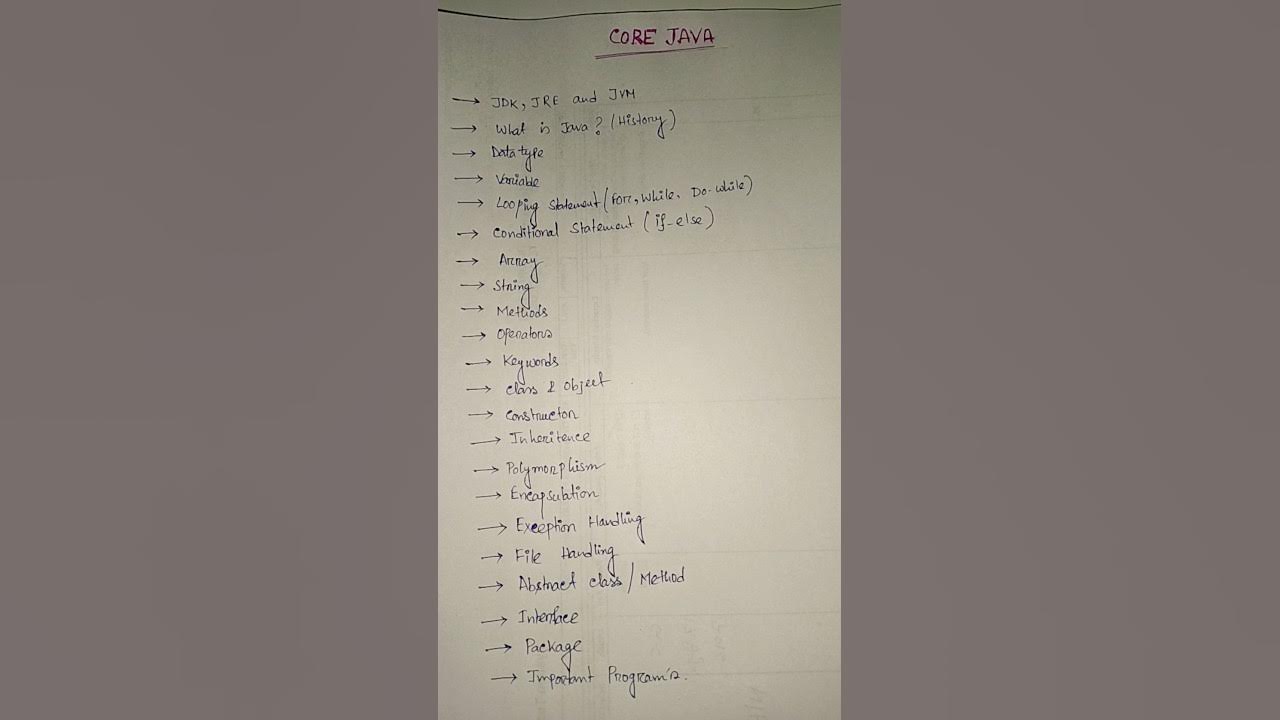 CORE JAVA
→ JDK, JRE and JVM
→ What is Java? (History)
→ Datatype
→ Variable
→ Looping Statement (For, While, Do-while)
→ Conditional Statement (if-else)
→ Array
→ String
→ Methods
→ Operators
→ Keywords
→ Class & Object
→ Constructor
→ Inheritence
→ Polymorphism
→ Encapsulation
→ Exception Handling
→ File Handling
→ Abstract class / Method
→ Interface
→ Package
→ Important Program's.